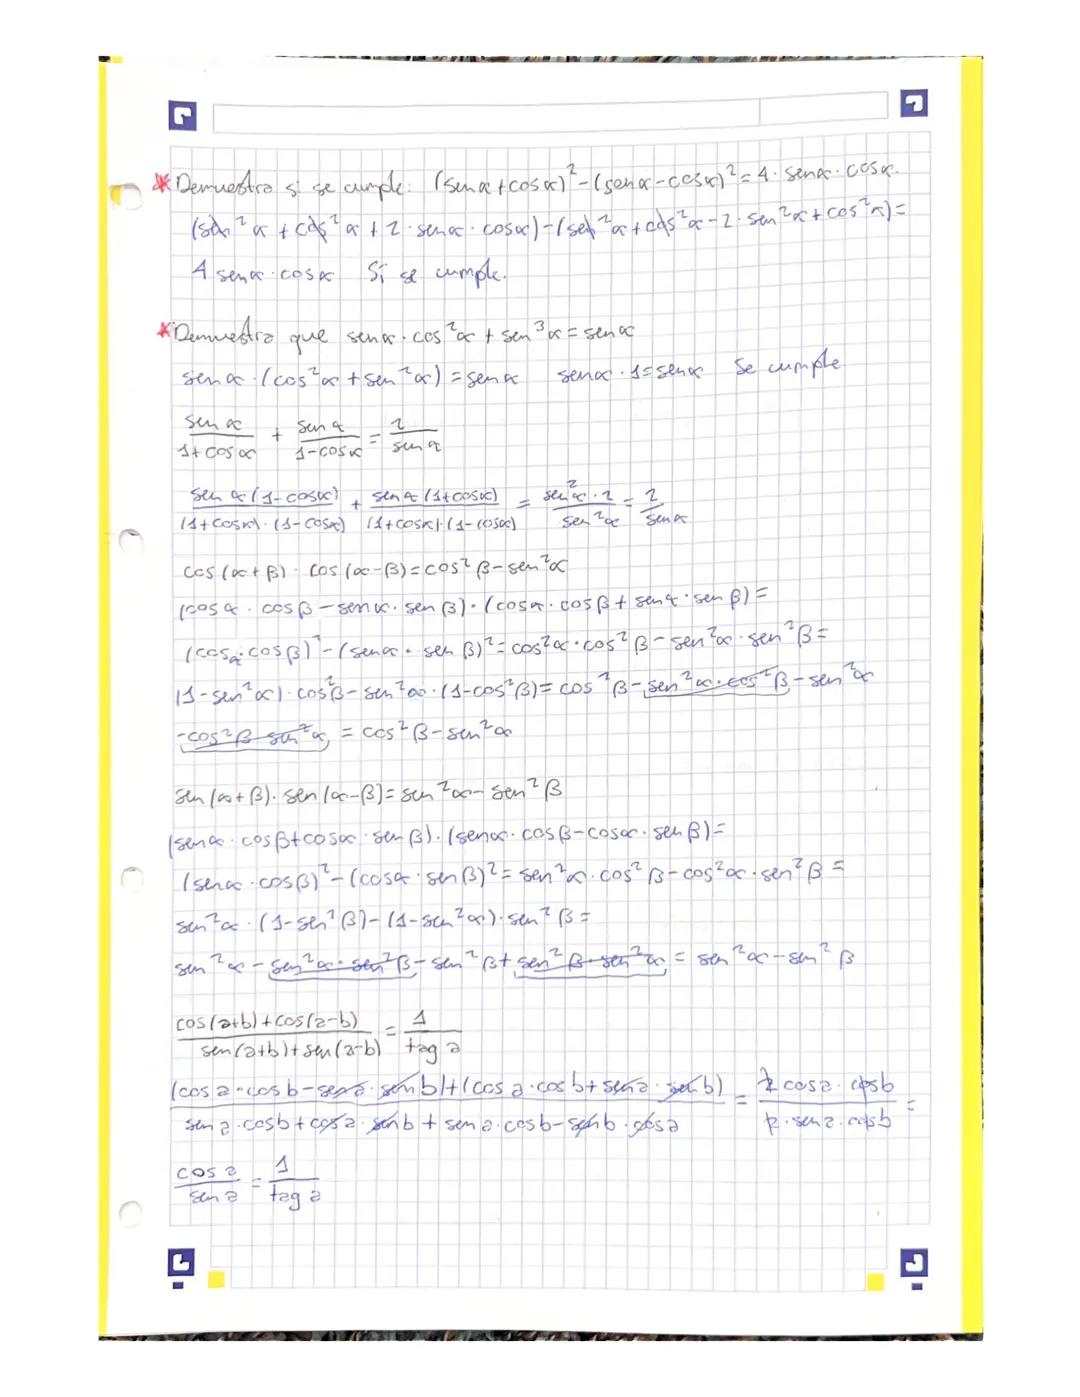 * Demuestra si se cumple: (sen α + cos α)² - (sen α - cos α)² = 4 · sen α · cos α.
(sen² α + cos² α + 2 · sen α · cos α) - (sen² α + cos² α - 2 · sen² α + cos² α) =
4 sen α · cos α Si se cumple.
* Demuestra que sen α · cos² α + sen³ α = sen α
sen α · (cos² α + sen² α) = sen α sen α · 1 = sen α Se cumple
sen α / 1 + cos α + sen α / 1 - cos α = 2 / sen α
sen α (1 - cos α) / (1 + cos α) · (1 - cos α) + sen α (1 + cos α) / (1 + cos α) · (1 - cos α) = sen² α · 2 / sen² α = 2 / sen α
cos (α + β) · cos (α - β) = cos² β - sen² α
(cos α · cos β - sen α · sen β) · (cos α · cos β + sen α · sen β) =
(cos α · cos β)² - (sen α · sen β)² = cos² α · cos² β - sen² α · sen² β =
(1 - sen² α) · cos² β - sen² α · (1 - cos² β) = cos² β - sen² α · cos² β - sen² α
- cos² β sen² α, = cos² β - sen² α
sen (α + β) · sen (α - β) = sen² α - sen² β
(sen α · cos β + cos α · sen β) · (sen α · cos β - cos α · sen β) =
(sen α · cos β)² - (cos α · sen β)² = sen² α · cos² β - cos² α · sen² β =
sen² α · (1 - sen² β) - (1 - sen² α) · sen² β =
sen² α - sen² α · sen² β - sen² β + sen² β · sen² α = sen² α - sen² β
cos (a+b) + cos (a-b) / sen (a+b) + sen (a-b) = 1 / tag a
(cos a · cos b - sen a · sen b) + (cos a · cos b + sen a · sen b) / sen a · cos b + cos a · sen b + sen a · cos b - sen b · cos a = 2 cos a · cos b / 2 · sen a · cos b =
cos a / sen a = 1 / tag a